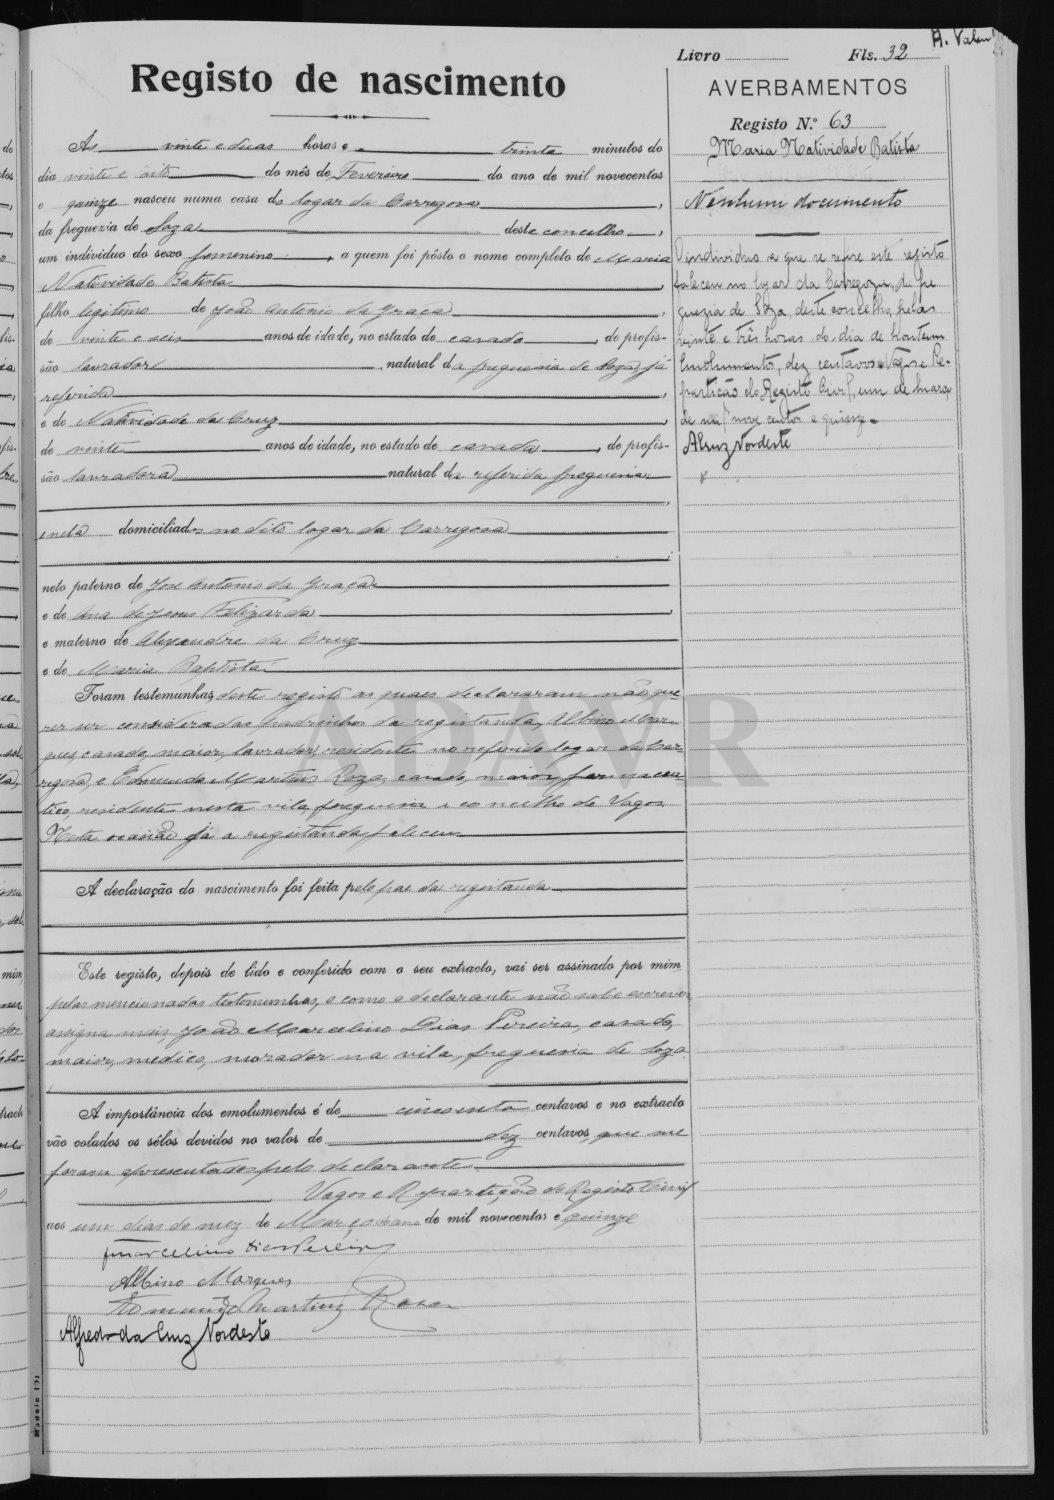 A. Valen
Livro Fls. 32
Registo de nascimento
As vinte e duas horas e trinta minutos do
dia vinte e oito do mês de Fevereiro do ano de mil novecentos
e quinze nasceu numa casa do logar da Carregosa,
da freguezia de Soza deste concelho,
um individuo do sexo femenino, a quem foi pôsto o nome completo de Maria
Natividade Batista,
filho legitimo de João Antonio da Graça,
de vinte e seis anos de idade, no estado de casado, de profis-
são lavrador, natural da freguesia de Soza, já
referida,
e de Natividade da Cruz,
de vinte anos de idade, no estado de casada, de profis-
são lavradora natural da referida freguesia
domiciliados no dito logar da Carregosa
neto paterno de José Antonio da Graça
e de Ana de Jesus Felizarda,
e materno de Alexandre da Cruz
e de Maria Baptista
Foram testemunhas deste registo as quaes declararam não que
rer ser consideradas padrinhos da registanda, Albino Mar
ques, casado, maior, lavrador, residente no referido logar da Car
regosa, e Edmundo Martins Roza, casado, maior, farmaceu-
tico, residente nesta vila, freguesia e concelho de Vagos.
Nesta ocasião já a registanda faleceu
A declaração do nascimento foi feita pelo pae da registanda
Este registo, depois de lido e conferido com o seu extracto, vai ser assinado por mim
pelas mencionadas testemunhas, e como o declarante não sabe escrever
assigna mais, João Marcelino Dias Pereira, casado,
maior, medico, morador na vila, freguesia de Soza.
A importância dos emolumentos é de cincoenta centavos e no extracto
vão colados os sêlos devidos no valor de dez centavos, que me
foram apresentados pelo declarante
Vagos e Repartição do Registo Civil
aos um dias do mez de Março de mil novecentos e quinze
Marcelino Dias Pereira
Albino Marques
Edmundo Martins Rosa
Alfredo da Cruz Nordeste
Modelo 121
AVERBAMENTOS
Registo N.º 63
Maria Natividade Batista
Nenhum documento
O individuo a que se refere este registo
faleceu no logar da Carregosa, da fre
guezia de Soza, deste concelho, pelas
vinte e três horas do dia de hontem
Emolumentos, dez centavos. Vagos e Re-
partição do Registo Civil, um de março
de mil nove centos e quinze.
ACruz Nordeste
ADAVR